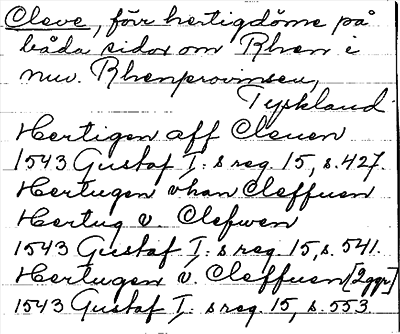 Cleve, förr hertigdöme på
båda sidor om Rhen i
nuv. Rhenprovinsen,
Tyskland.
Hertigen aff Cleuen
1543 Gustaf I:s reg. 15, s. 427.
Hertugen vhan Cleffuen
Hertug v. Clefwen
1543 Gustaf I:s reg. 15, s. 541.
Hertugen v. Cleffuen [2ggr]
1543 Gustaf I:s reg. 15, s. 553.